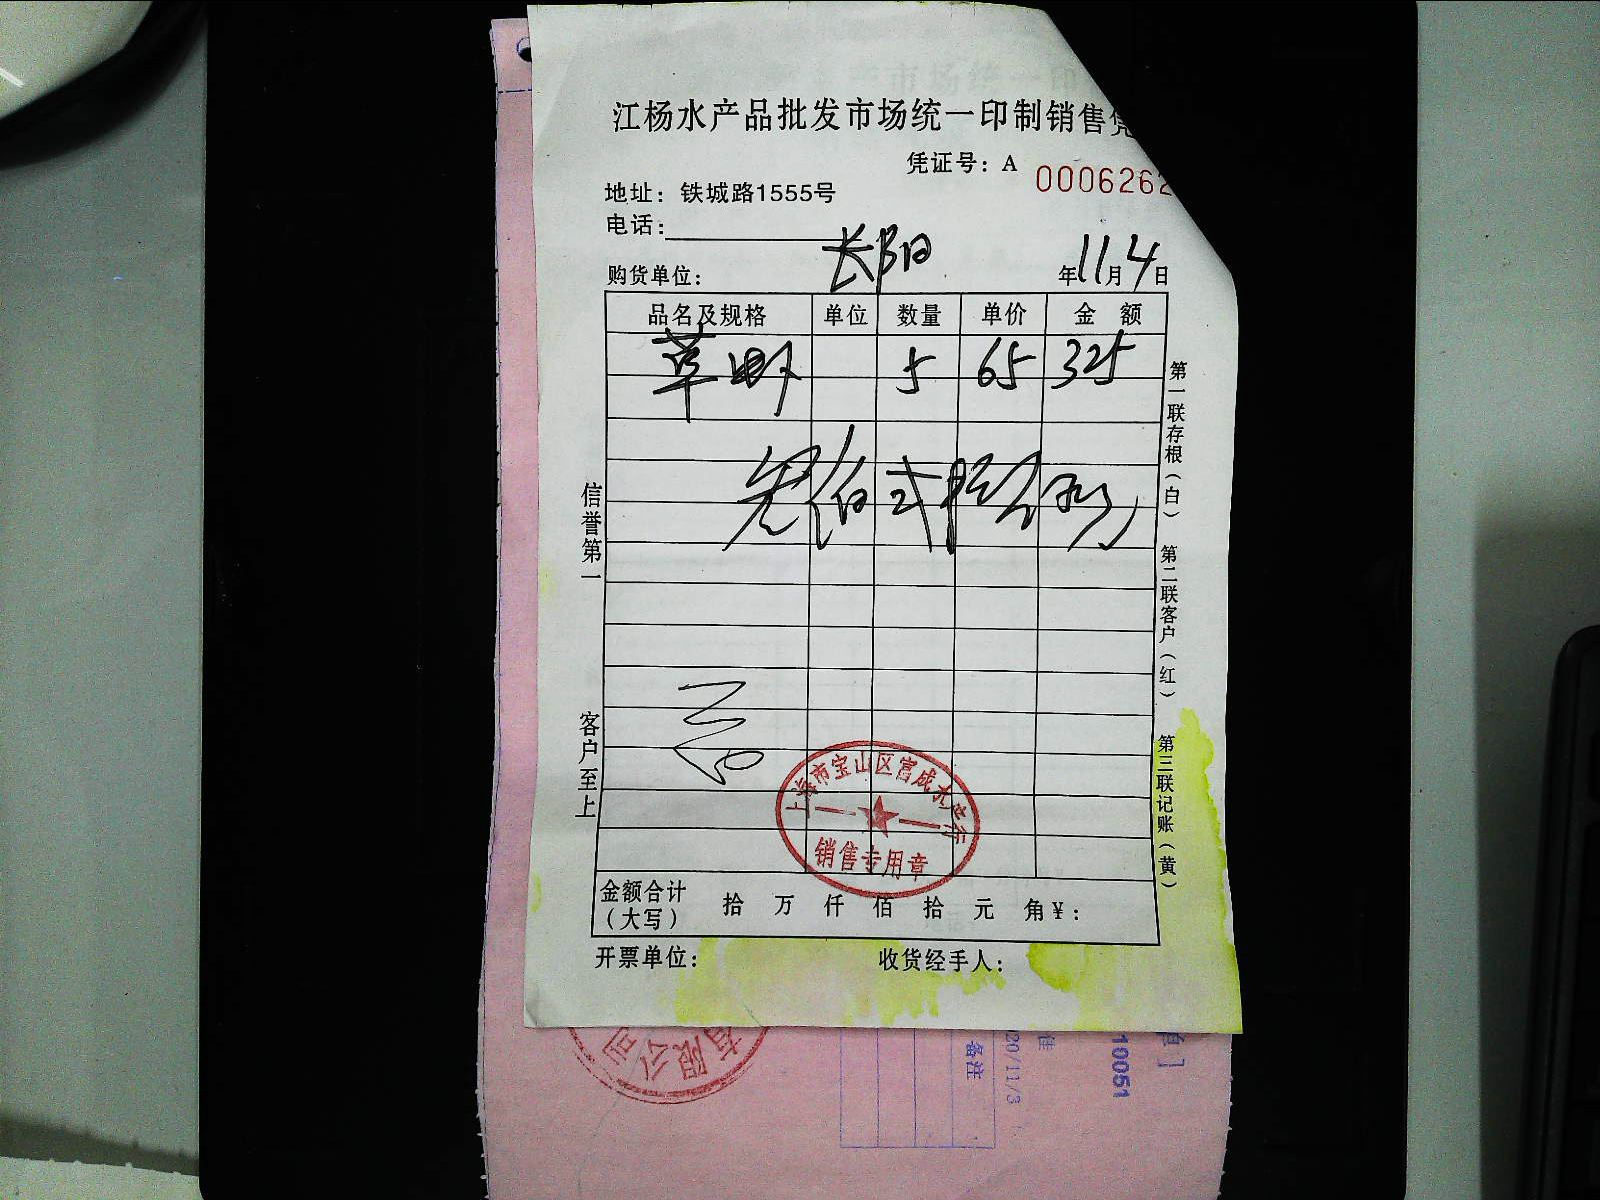 江杨水产品批发市场统一印制销售凭
凭证号：A 0006262
地址：铁城路1555号
电话：
购货单位： 长阳 年11月4日
品名及规格 单位 数量 单价 金额
草虾 5 65 325
叁佰贰拾伍元
信誉第一
客户至上
第一联存根（白）
第二联客户（红）
第三联记账（黄）
上海市宝山区
销售专用章
金额合计（大写） 拾 万 仟 佰 拾 元 角 ¥：
开票单位： 收货经手人：
有限公司
备注
20/11/3
10051